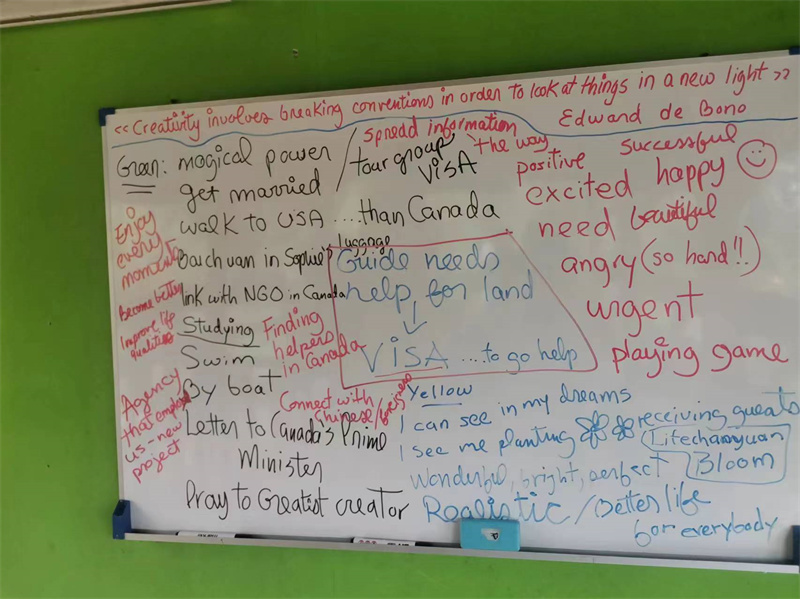 << Creativity involves breaking conventions in order to look at things in a new light >>
Edward de Bono
Green: magical power
get married
walk to USA ....than Canada
Baichuan in Sophie's luggage
link with NGO in Canada
Studying
Swim
By boat
Letter to Canada's Prime
Minister
Pray to Greatist creator
/ tour group
VISA
spread information
the way
Enjoy
every
moment
Become better
Improve life
qualities
Agency
that employ
us - new
project
Finding
helpers
in Canada
Connect with
Chinese/
Guide needs
help for land
VISA ....to go help
positive
successful
excited happy
need beautiful
angry (so hard!!)
urgent
playing game
Yellow
I can see in my dreams
I see me planting receiving guests
Lifechanyuan
Bloom
Wonderful, bright, perfect
Realistic / Better life
for everybody